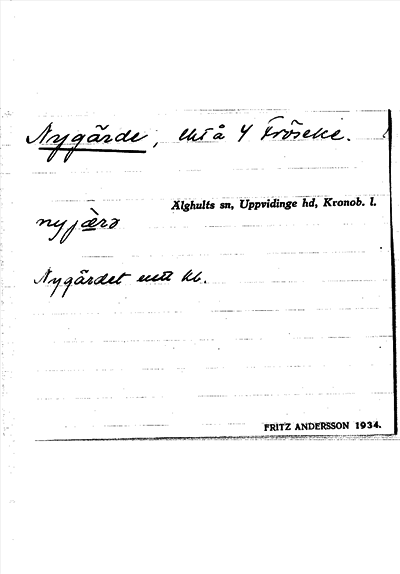 Nygärde, å 4 Fröseke.
Älghults sn, Uppvidinge hd, Kronob. l.
nyjæ̀rə
Nygärdet kb.
FRITZ ANDERSSON 1934.